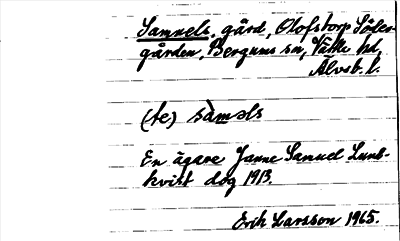 Samuels, gård, Olofstorp Söder-
gården, Bergums sn, Vättle hd,
Älvsb. l.
(te) sàməls
En ägare Janne Samuel Lund-
kvist dog 1913.
Erik Larsson 1965.